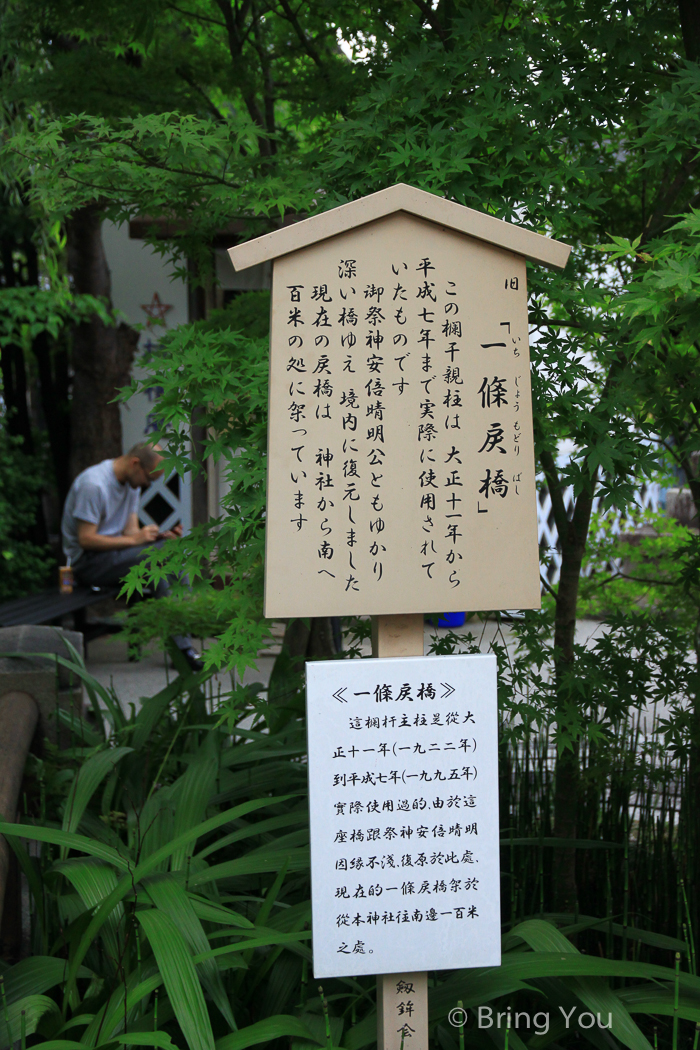 旧「一條戻橋」
いち じょう もどり ばし
この欄干親柱は 大正十一年から
平成七年まで実際に使用されて
いたものです
御祭神安倍晴明公ともゆかり
深い橋ゆえ 境内に復元しました
現在の戻橋は 神社から南へ
百米の処に架っています
《一條戻橋》
這欄杆主柱是從大
正十一年(一九二二年)
到平成七年(一九九五年)
實際使用過的,由於這
座橋跟祭神安倍晴明
因緣不淺,復原於此處、
現在的一條戻橋架於
從本神社往南邊一百米
之處。
鉾会
© Bring You